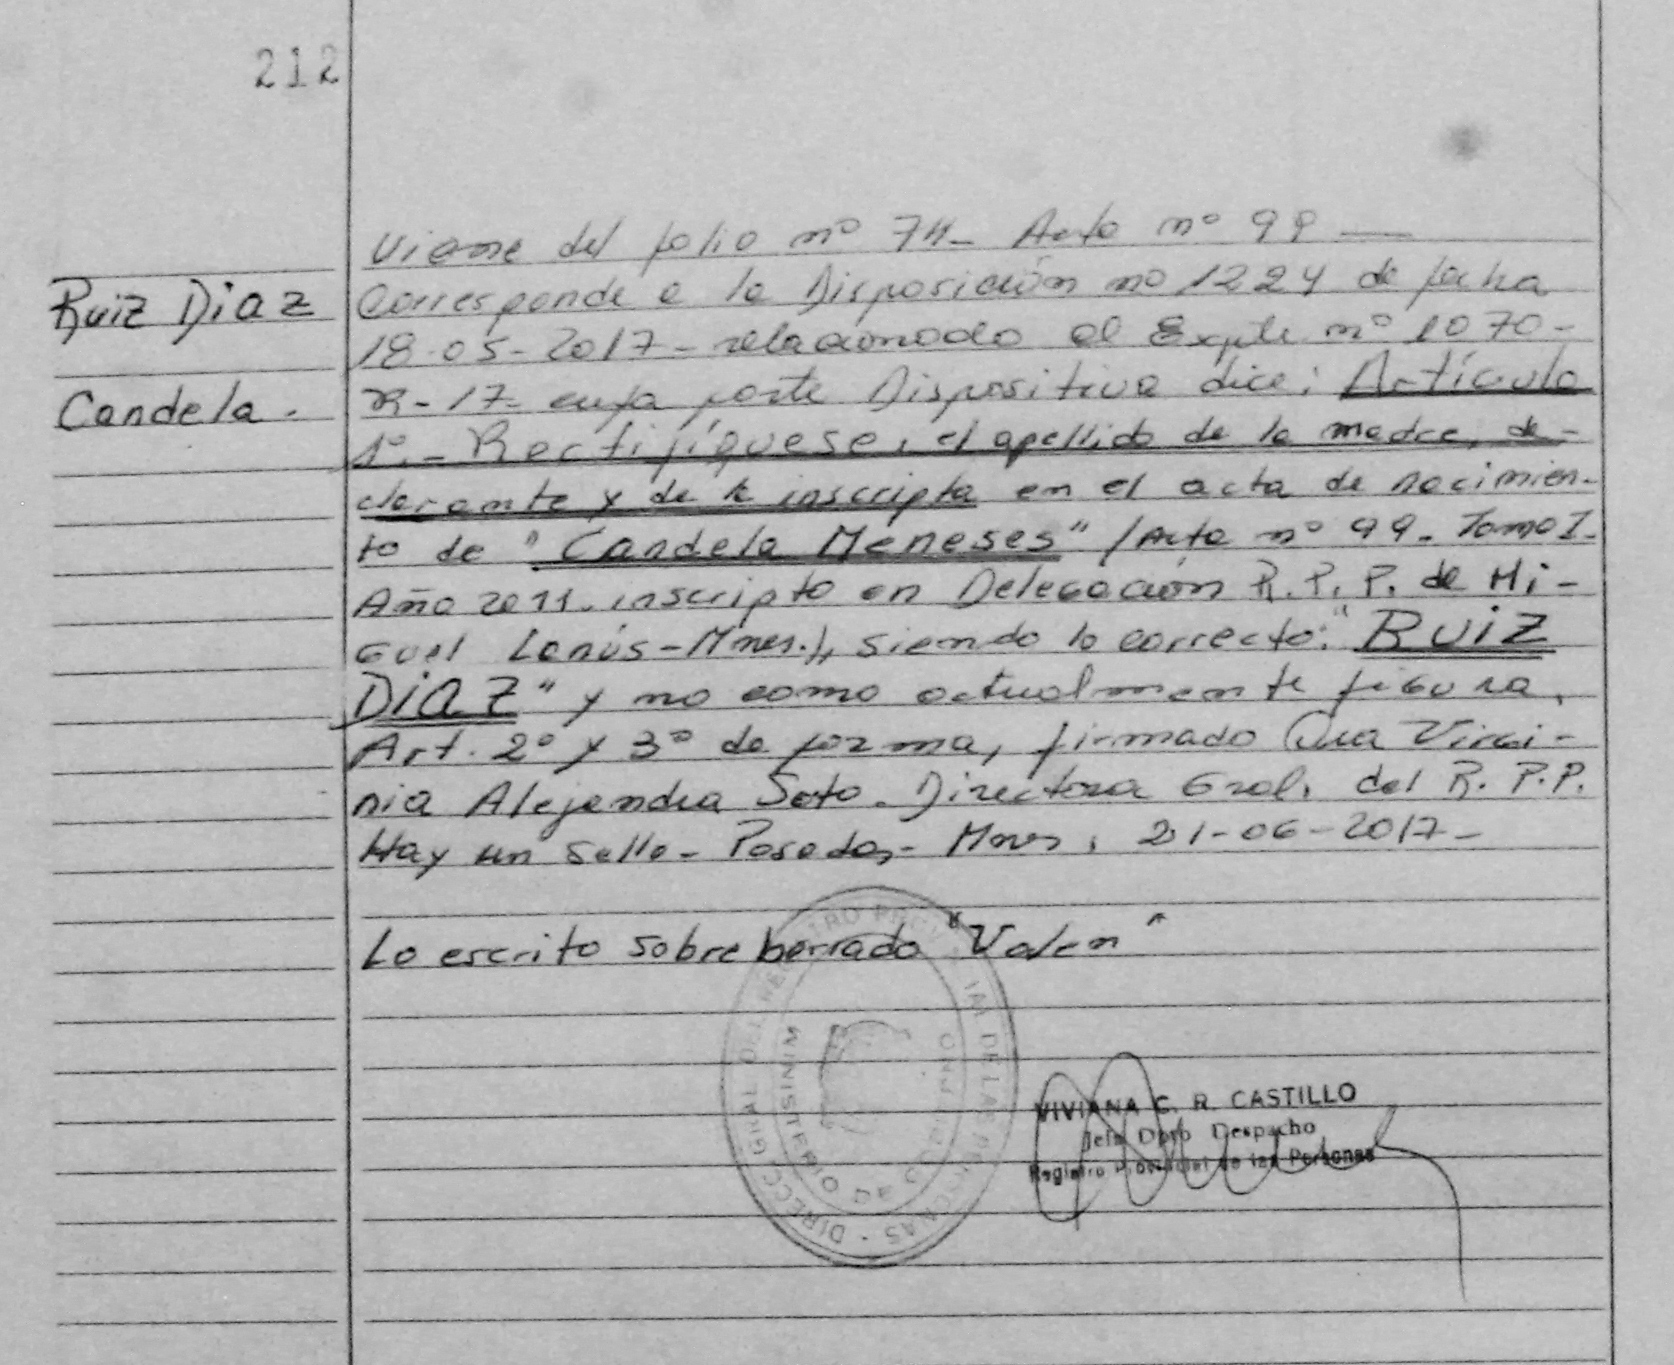 212
Viene del folio nº 74- Acta nº 99 —
Ruiz Diaz
Corresponde a la Disposición nº 1224 de fecha
18-05-2017- relacionado al Expte. nº 1070-
Candela.
R-17- cuya parte Dispositiva dice: Artículo
1º.- Rectifíquese, el apellido de la madre, de-
clarante y de la inscripta en el acta de nacimien-
to de "Candela Meneses" (Acta nº 99- Tomo I-
Año 2011- inscripto en Delegación R.P.P. de Mi-
guel Lanús-Mnes.), siendo lo correcto: "RUIZ
DIAZ" y no como actualmente figura,
Art. 2º y 3º de forma, firmado Dra Virgi-
nia Alejandra Soto- Directora Gral. del R.P.P.
Hay un sello- Posadas- Mnes, 21-06-2017-
Lo escrito sobre borrado "Valen"
VIVIANA C. R. CASTILLO
Jefa Dpto Despacho
Registro Provincial de las Personas
DIRECC GRAL DEL REGISTRO PROVINCIAL DE LAS PERSONAS
MINISTERIO DE GOBIERNO